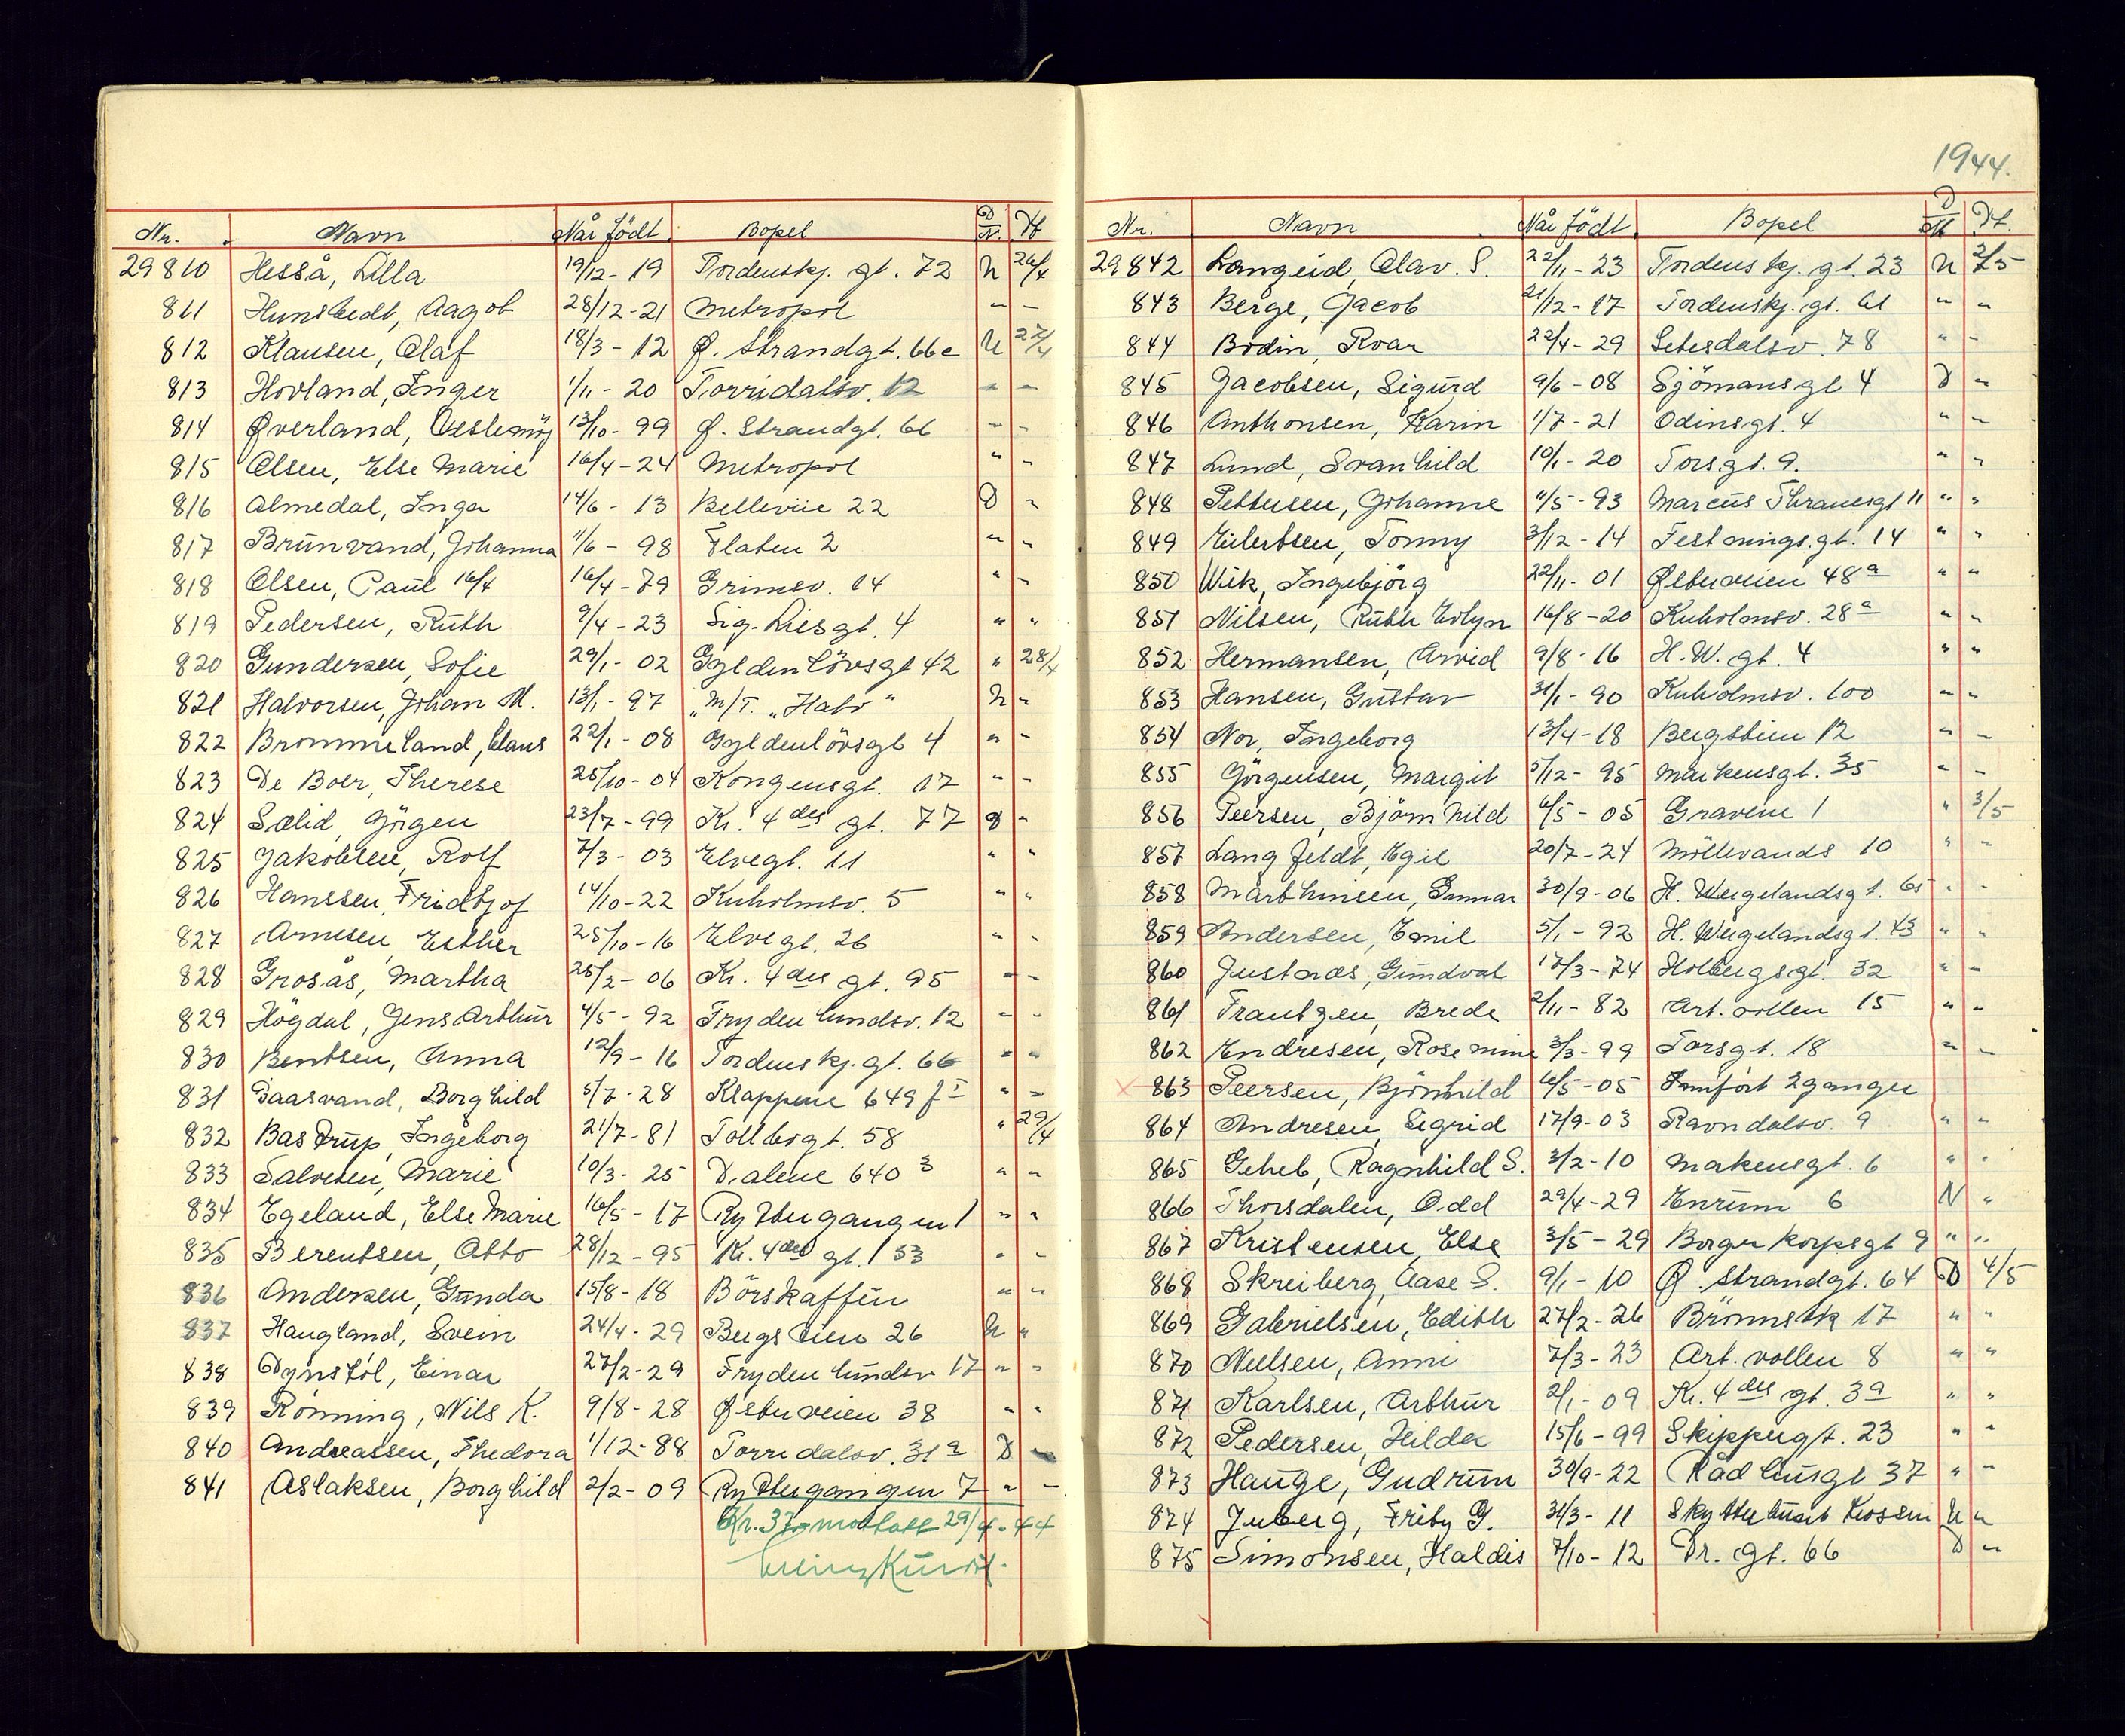 Nr. Navn Når född. Bopel D/N. Dt
29810 Hesså, Lilla 19/12-19 Tordenskj. gt. 72 N 26/4
811 Hunstedt, Aagot 28/12-21 Metropol " -
812 Klausen, Olaf 18/3-12 Ø. Strandgt. 66c N 27/4
813 Hovland, Inger 1/11-20 Torridalsv. 12 - -
814 Øverland, 13/10-99 Ø. Strandgt. 66 - -
815 Olsen, Else Marie 16/4-24 Metropol " -
816 Almedal, Inga 14/6-13 Bellevüe 22 D -
817 Brünvand, Johanna 11/6-98 Flaten 2 " "
818 Olsen, Paul 16/4 16/4-79 Grimsv. 14 " -
819 Pedersen, Rüth 9/4-23 Sig. Liesgt. 4 " "
820 Gundersen, Sofie 29/1-02 Gyldenlövsgt 42 " 28/4
821 Halvorsen, Johan M. 13/1-97 "M/T. "Hato" N "
822 Brommeland, Claus 22/1-08 Gyldenlövsgt 4 " -
823 De Boer, Therese 25/10-04 Kongensgt. 17 " -
824 Sælid, Jörgen 23/7-99 Kr. 4des gt. 77 D -
825 Jakobsen, Rolf 7/3-03 Elvegt. 11 " "
826 Hanssen, Fridtjof 14/10-22 Kuholmsv. 5 " "
827 Arnesen, Esther 25/10-16 Elvegt. 26 " "
828 Grosås, Martha 25/2-06 Kr. 4des gt. 95 - -
829 Högdal, Jens Arthür 4/5-92 Frydenlundsv. 12 - -
830 Bentsen, Anna 12/9-16 Tordenskj. gt. 66 " "
831 Gaasvand, Borghild 5/7-28 Klappene 649 f I " -
832 Bastrup, Ingeborg 21/7-81 Tollbogt. 58 " 29/4
833 Salvesen, Marie 10/3-25 Dalene 640 3 " "
834 Egeland, Else Marie 16/5-17 Ryttergangen 1 " "
835 Berentsen, Otto 28/12-95 Kr. 4des gt. 53 " -
836 Andersen, Gunda 15/8-18 Börskaffen " "
837 Haugland, Svein 24/4-29 Bergstien 26 N "
838 Dynstöl, Einar 27/2-29 Frydenlundsv 17 " "
839 Rönning, Nils K. 9/8-28 Østerveien 38 " "
840 Andreassen, Thedora 1/12-88 Torridalsv. 31a D -
841 Aslaksen, Borghild 2/2-09 Ryttergangen 7 " -
Kr. 37,- mottatt 29/4-44
1944.
Nr. Navn Når född. Bopel D/N Dt.
29842 Langeid, Olav. S. 22/11-23 Tordenskj. gt. 23 N 2/5
843 Berge, Jacob 21/12-17 Tordenskj. gt. 61 " "
844 Bodin, Roar 22/4-29 Setesdalsv. 78 " -
845 Jacobsen, Sigürd 9/6-08 Sjömansgt 4 D "
846 Anthonsen, Karin 1/7-21 Odinsgt. 4 " "
847 Lund, Svanhild 10/1-20 Torsgt. 9. " "
848 Pettersen, Johanne 11/5-93 Marcüs Thranesgt 11 " "
849 Eilertsen, Tonny 3/12-14 Festningsgt. 14 " "
850 Wik, Ingebjörg 22/11-01 Østerveien 48a " "
851 Nilsen, Rüth Evlyn 16/8-20 Kuholmsv. 28a " "
852 Hermansen, Arvid 9/8-16 H. W. gt. 4 " "
853 Hansen, Güstav 31/1-90 Kuholmsv. 100 " "
854 Nor, Ingeborg 13/4-18 Bergstien 12 " -
855 Jörgensen, Margit 5/12-95 Markensgt. 35 " -
856 Peersen, Björnhild 6/5-05 Gravene 1 " 3/5
857 Langfeldt, Egil 20/7-24 Möllevands 10 " -
858 Marthinsen, Gunnar 30/9-06 H. Wergelandsgt. 65 " -
859 Andersen, Emil 5/1-92 H. Wergelandsgt. 43 " "
860 Justnæs, Gündval 17/3-74 Holbergsgt. 32 " -
861 Frantzen, Brede 2/11-82 Art. vollen 15 " "
862 Endresen, Rosemine 3/3-99 Torsgt. 18 " -
x 863 Peersen, Björnhild 6/5-05 Innfört 2 ganger
864 Andresen, Sigrid 17/9-03 Ravndalsv. 9 " "
865 Geheb, Ragnhild S. 3/2-10 Markensgt. 6 " "
866 Thorsdalen, Odd 29/4-29 Enrum 6 N "
867 Kristensen, Else 3/5-29 Borgerkorpsgt 9 " "
868 Skreiberg, Aase S. 9/1-10 Ø. Strandgt. 64 D 4/5
869 Gabrielsen, Edith 27/2-26 Brönnstk 17 " "
870 Nielsen, Anni 7/3-23 Art. vollen 8 " "
871 Karlsen, Arthür 2/1-09 Kr. 4des gt. 3a " "
872 Pedersen, Hilda 15/6-99 Skippergt. 23 " "
873 Haüge, Gudrün 30/9-22 Rådhüsgt 37 " "
874 Juberg, G. 31/3-11 Skytterhuset Kossen N "
875 Simonsen, Haldis 7/10-12 Dr. gt. 66 D "